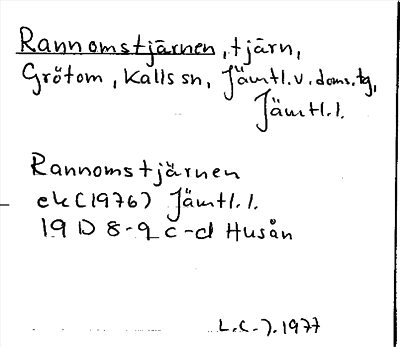 Rannomstjärnen, tjärn,
Grötom, Kalls sn, Jämtl.v.doms.tg,
Jämtl.l.
Rannomstjärnen
ek (1976) Jämtl.l.
19 D 8-9 c-d Husån
L.C-J.1977